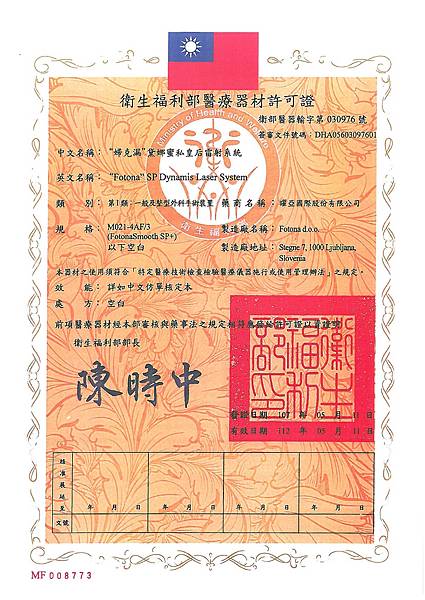 衛生福利部醫療器材許可證
衛部醫器輸字第 030976 號
簽審文件號碼：DHA05603097601
Ministry of Health and Welfare
衛生福利部
中文名稱："婦克漏"黛娜蜜私皇后雷射系統
英文名稱："Fotona" SP Dynamis Laser System
類 別：第I類：一般及整型外科手術裝置 藥商名稱：曜亞國際股份有限公司
規 格：M021-4AF/3 製造廠名稱：Fotona d.o.o.
(FotonaSmooth SP+)
以下空白 製造廠地址：Stegne 7, 1000 Ljubljana,
Slovenia
本器材之使用須符合「特定醫療技術檢查檢驗醫療儀器施行或使用管理辦法」之規定。
效 能：詳如中文仿單核定本
處 方：空白
前項醫療器材經本部審核與藥事法之規定相符應發給許可證以資證明
衛生福利部部長
陳時中
衛生福利部印
發證日期 107 年 05 月 11 日
有效日期 112 年 05 月 11 日
核准展延至 年 月 日 年 月 日 年 月 日 年 月 日
文號
MF008773